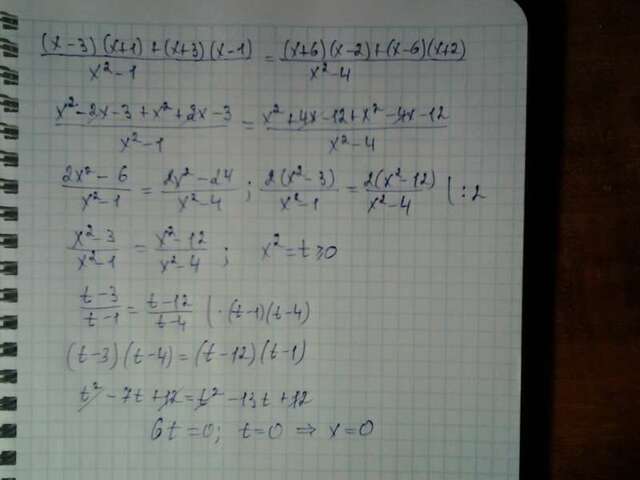 ((x-3)(x+1)+(x+3)(x-1))/(x²-1) = ((x+6)(x-2)+(x-6)(x+2))/(x²-4)
(x²-2x-3+x²+2x-3)/(x²-1) = (x²+4x-12+x²-4x-12)/(x²-4)
(2x²-6)/(x²-1) = (2x²-24)/(x²-4) ; 2(x²-3)/(x²-1) = 2(x²-12)/(x²-4) | :2
(x²-3)/(x²-1) = (x²-12)/(x²-4) ; x²=t≥0
(t-3)/(t-1) = (t-12)/(t-4) | ·(t-1)(t-4)
(t-3)(t-4)=(t-12)(t-1)
t²-7t+12=t²-13t+12
6t=0; t=0 ⇒ x=0